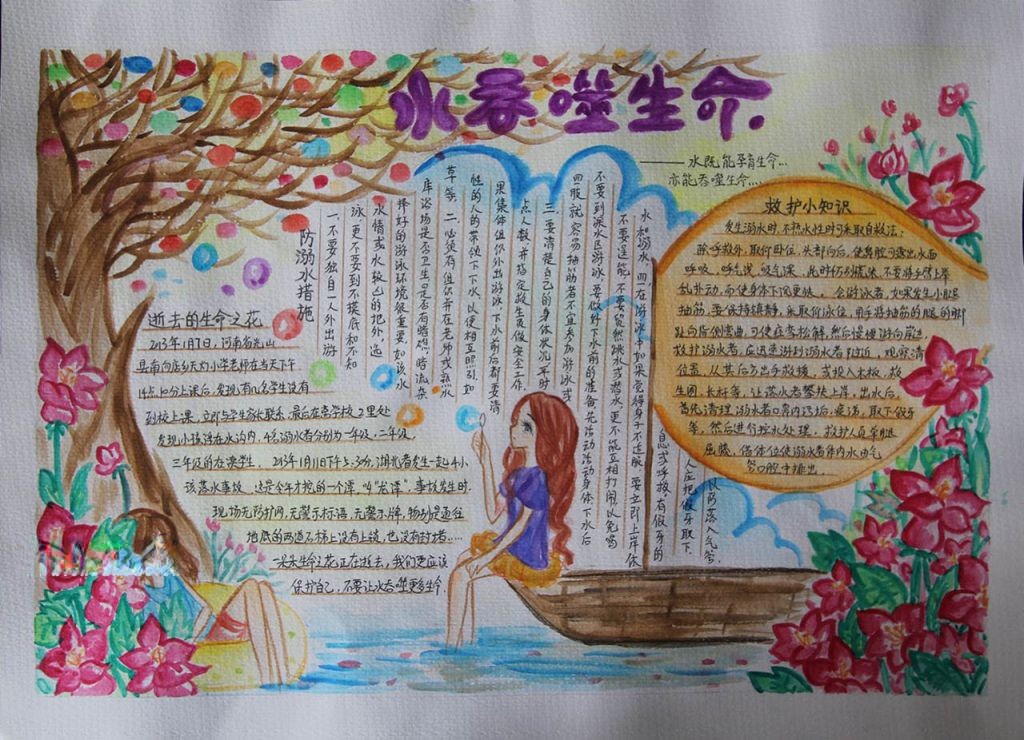 水吞噬生命.
——水既能孕育生命…
亦能吞噬生命…
防溺水措施
一、不要独自一人外出游
泳,更不要到不摸底和不知
水情或水较
的地外,选
择好的游泳环境很重要,如该水
库浴场是否卫生,是否有暗礁、暗流、杂
草等。二、必须有组织并在老师或熟水
性的人的带领下下水,以便相互照引,如
果集体组织外出游泳下水前后都要清
点人数并指定救生员做安全工作。
三、要清楚自己的身体状况,平时
四肢就容易抽筋者不宜参加游泳或
不要到深水区游泳,要做好下水前的准备,先活动活动身体下水后
不要逞能,不要贸然跳水或潜水,更不能互相打闹以免喝
水和溺水。四、在游泳中如果觉得身子不适服,要立即上岸休
息或呼救,有假牙的
人应把假牙取下,
以防落入气管
逝去的生命之花
2013年1月7日,河南省光山
县南向店乡天
小学老师在当天下午
14点10分上课后,发现有几名学生没有
到校上课,立即与学生家长联系,最后在离学校2里处
发现小孩淹在水沟内,4名溺水者分别为一年级,二年级,
三年级的在读学生。2013年1月11日下午5:30分,湖
者发生一起4小
孩落水事故,这是今年才挖的一个潭,叫“龙潭”,事故发生时,
现场无防护网,无警示标语,无警示牌,特别是通往
池底的两道石梯上没有上锁,也没有封堵…
一朵朵生命之花正在逝去,我们更应该
保护自己,不要让水吞噬更多生命
救护小知识
发生溺水时,不熟水性时可采取自救法:
除呼救外,取仰卧位,头部向后,使鼻腔可露出水面
呼吸,呼气浅,吸气深,此时切勿慌张,不要将手臂上举
乱扑动,而使身体下沉更快。会游泳者,如果发生小腿
抽筋,要保持镇静,采取仰泳位,用手将抽筋的腿的脚
趾向背侧弯曲,可使痉挛松解,然后慢慢游向岸边,
救护溺水者,应迅速游到溺水者附近,观察清
位置,从其后方出手救援,或投入木板,救
生圈,长杆等,让落水者攀扶上岸,出水后,
首先清理溺水者口鼻内污垢,痰涕,取下假牙
等,然后进行控水处理。救护人员单腿
屈膝,
体位使溺水者体内水由气
口腔中排出